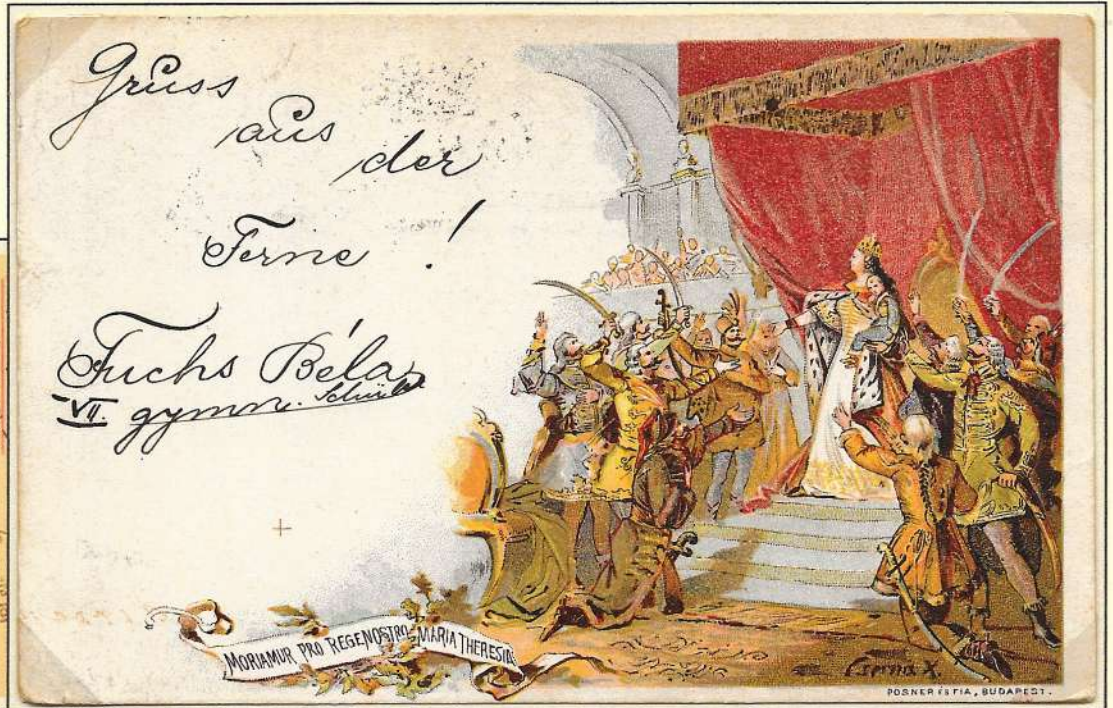 Gruss
aus
der
Ferne !
Fuchs Béla
VII. gymn.
MORIAMUR PRO REGE NOSTRO MARIA THERESIA
POSNER ÉS FIA, BUDAPEST.